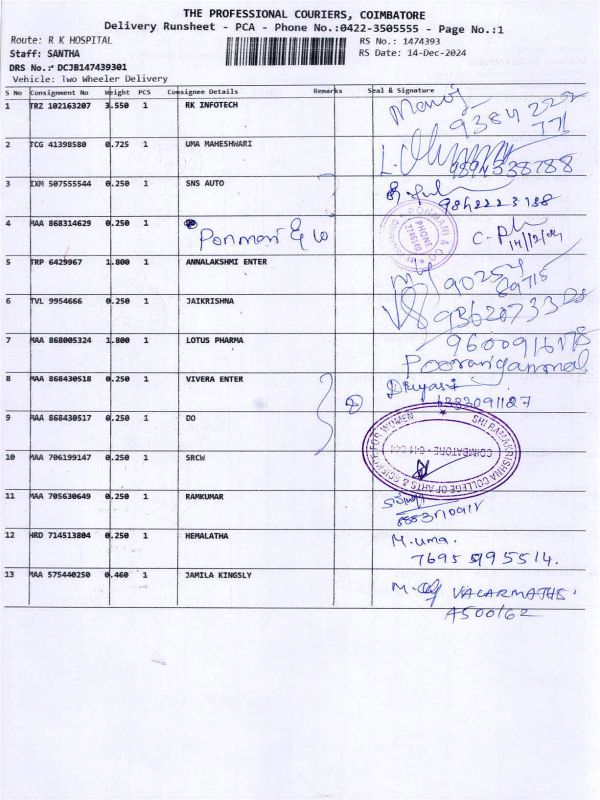 THE PROFESSIONAL COURIERS, COIMBATORE
Delivery Runsheet - PCA - Phone No.:0422-3505555 - Page No.:1
Route: R K HOSPITAL RS No.: 1474393
Staff: SANTHA RS Date: 14-Dec-2024
DRS No.: DCJB147439301
Vehicle: Two Wheeler Delivery
S No Consignment No Weight PCS Consignee Details Remarks Seal & Signature
1 TRZ 102163207 3.550 1 RK INFOTECH Manoj
9384 222
771
2 TCG 41398580 0.725 1 UMA MAHESHWARI
3 IXM 507555544 0.250 1 SNS AUTO
4 MAA 868314629 0.250 1
C-
5 TRP 6429967 1.800 1 ANNALAKSHMI ENTER
6 TVL 9954666 0.250 1 JAIKRISHNA
7 MAA 868005324 1.800 1 LOTUS PHARMA 9600916178
Poorangammal
8 MAA 868430518 0.250 1 VIVERA ENTER
9 MAA 868430517 0.250 1 DO
SRI RAMAKRISHNA COLLEGE OF ARTS & SCIENCE FOR WOMEN
10 MAA 706199147 0.250 1 SRCW
11 MAA 705630649 0.250 1 RAMKUMAR
12 HRD 714513804 0.250 1 HEMALATHA M.uma.
7695 995514.
13 MAA 575440250 0.460 1 JAMILA KINGSLY